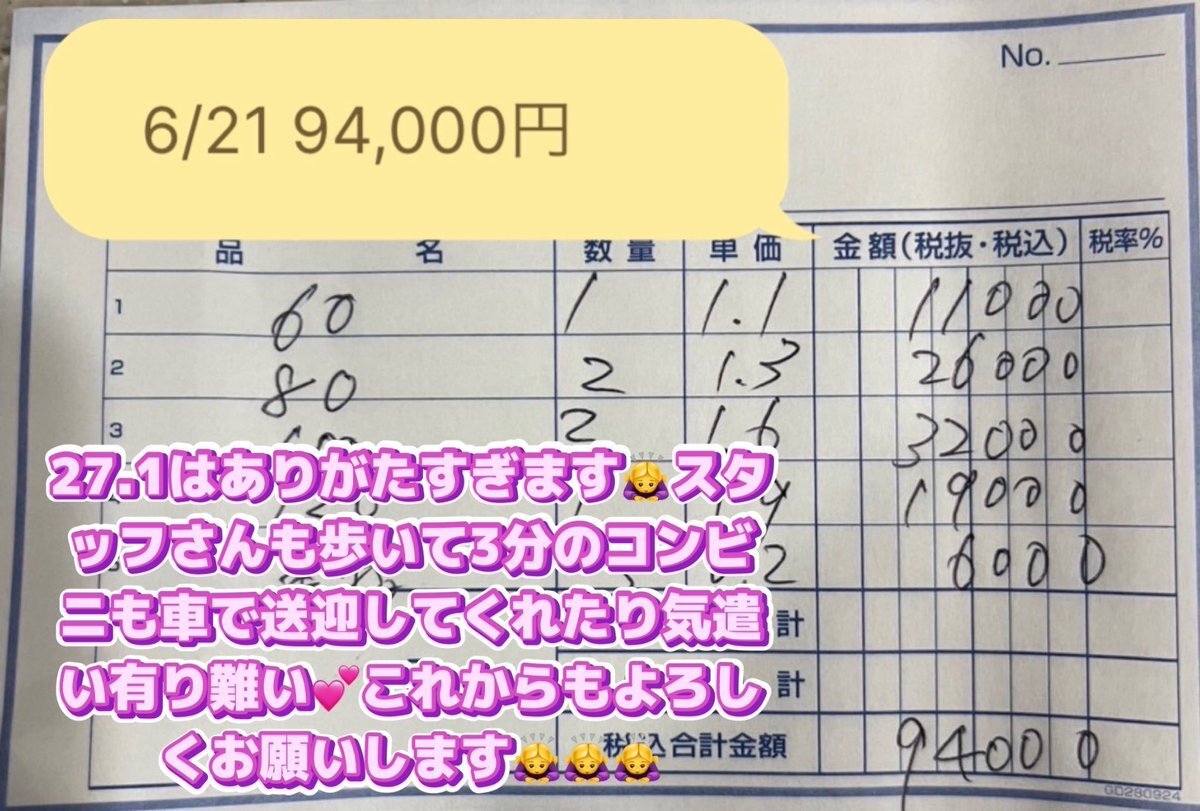 No.
6/21 94,000円
品名 数量 単価 金額(税抜・税込) 税率%
1 60 1 1.1 11000
2 80 2 1.3 26000
3 2 1.6 32000
19000
6000
27.1はありがたすぎます🙇‍♀️スタ
ッフさんも歩いて3分のコンビ
ニも車で送迎してくれたり気遣
い有り難い💕これからもよろし
くお願いします🙇‍♀️🙇‍♀️🙇‍♀️
計
計
税込合計金額 94000
GD280924